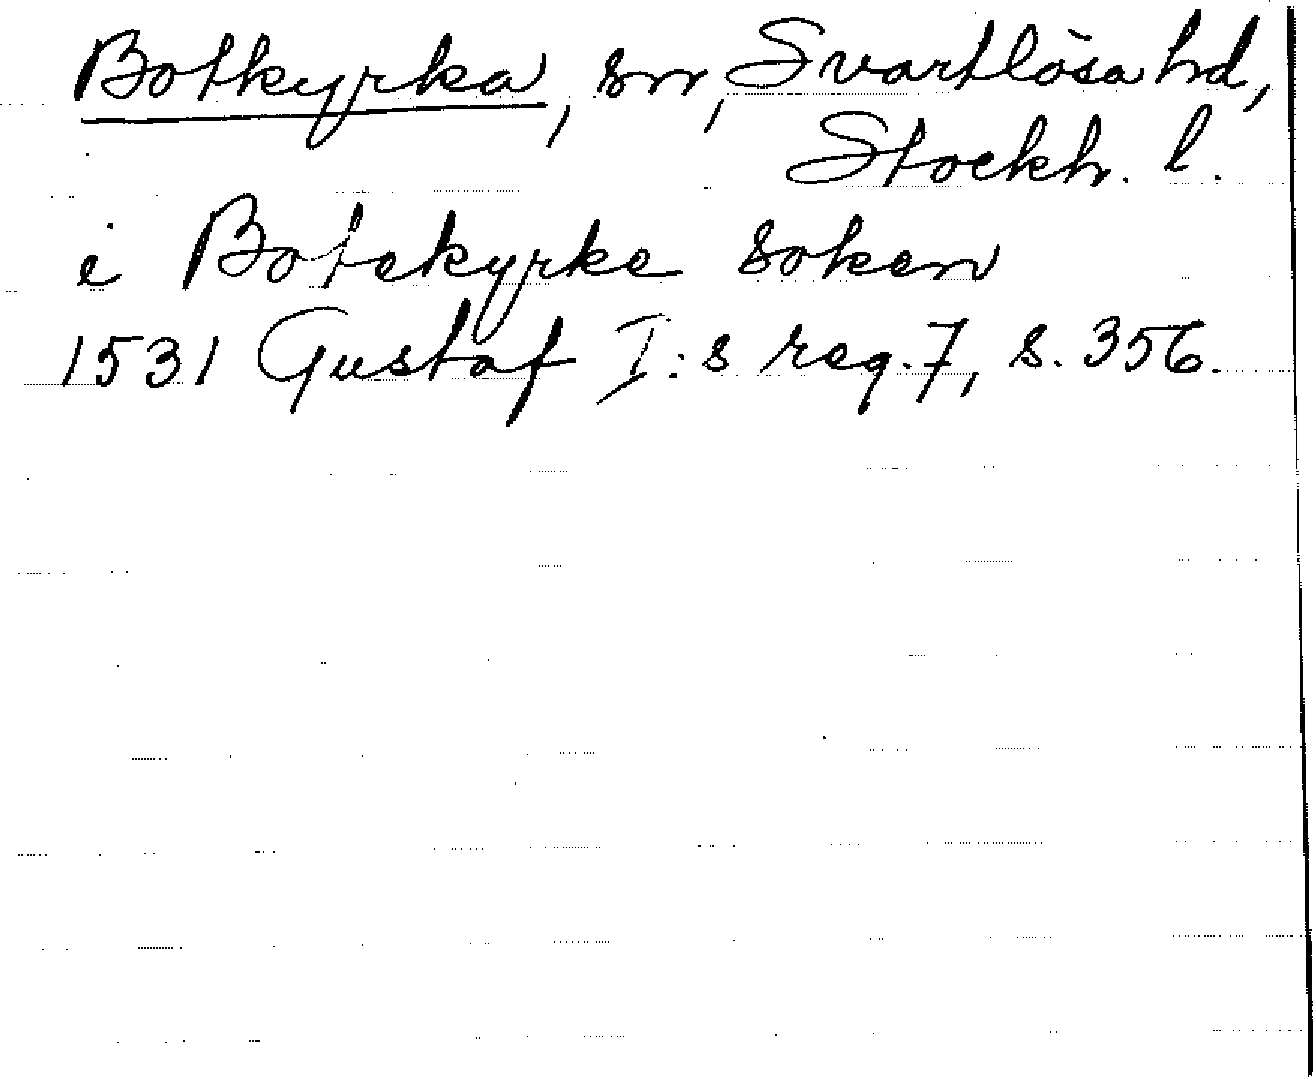 Botkyrka, sn, Svartlösa hd,
Stockh. l.
i Botekyrke soken
1531 Gustaf I:s reg. 7, s. 356.